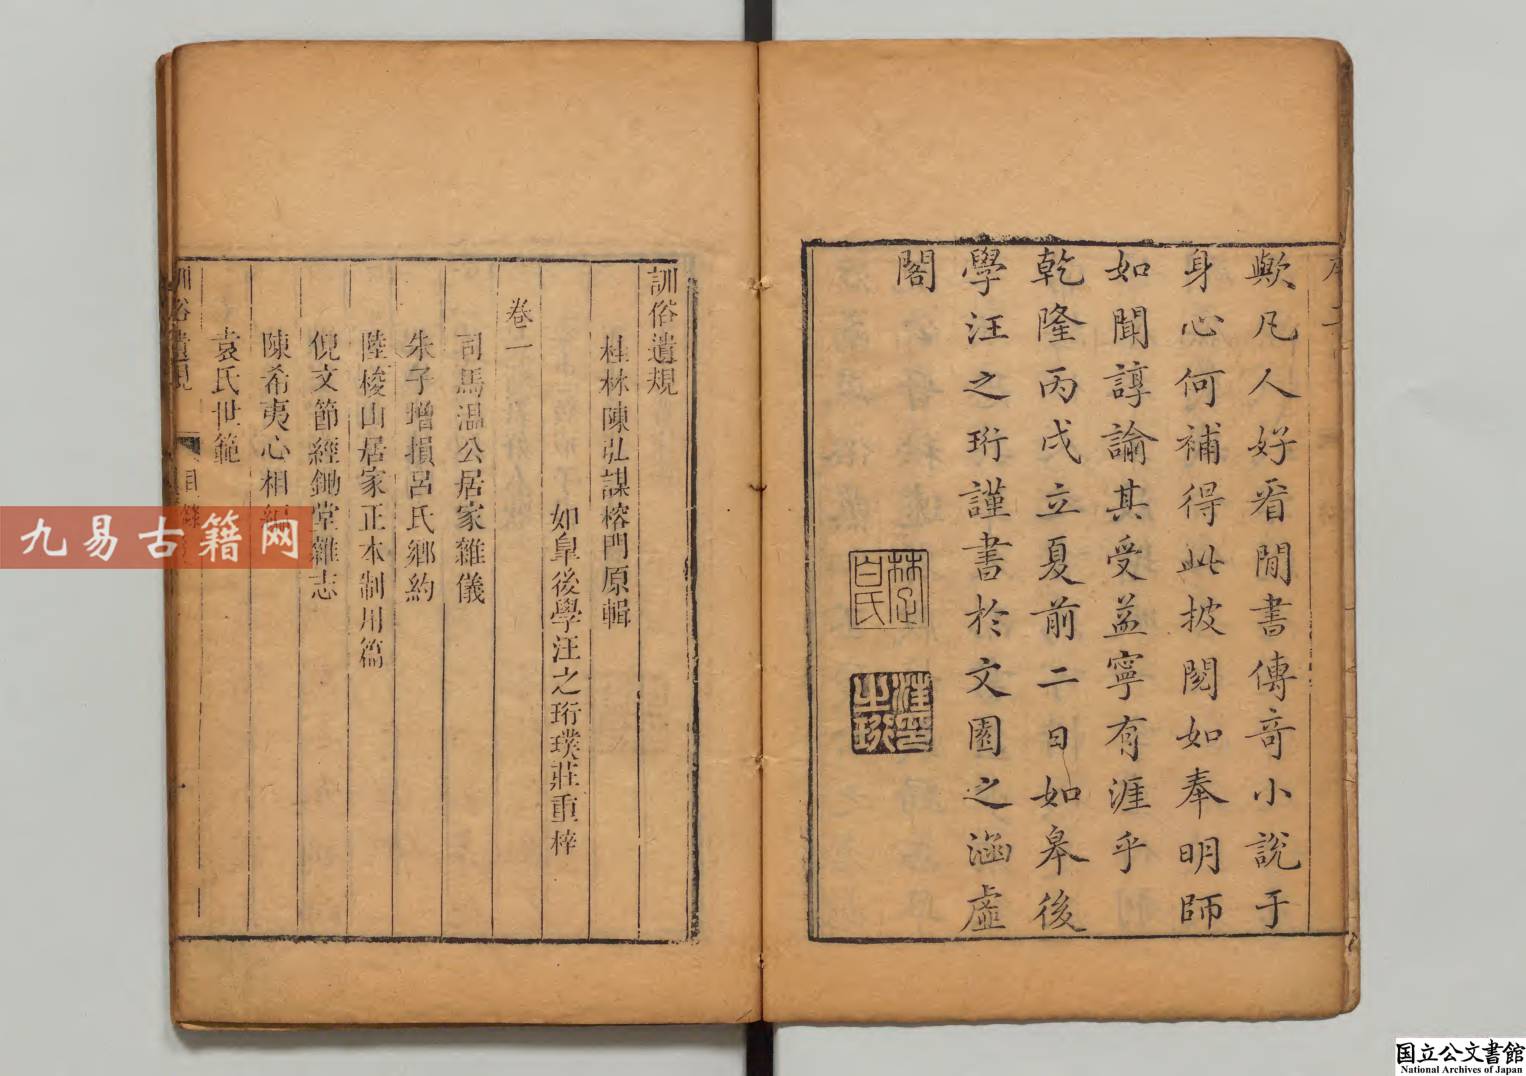 歟凡人好看閒書傳奇小說于
身心何補得此披閱如奉明師
如聞諄諭其受益寧有涯乎
乾隆丙戌立夏前二日如皋後
學汪之珩謹書於文園之涵虛
閣
訓俗遺規
桂林陳弘謀榕門原輯
如皋後學汪之珩璞莊重梓
卷一
司馬溫公居家雜儀
朱子增損呂氏鄉約
陸梭山居家正本制用篇
倪文節經鋤堂雜志
陳希夷心相編
袁氏世範
訓俗遺規
目錄
九易古籍网
国立公文書館
National Archives of Japan